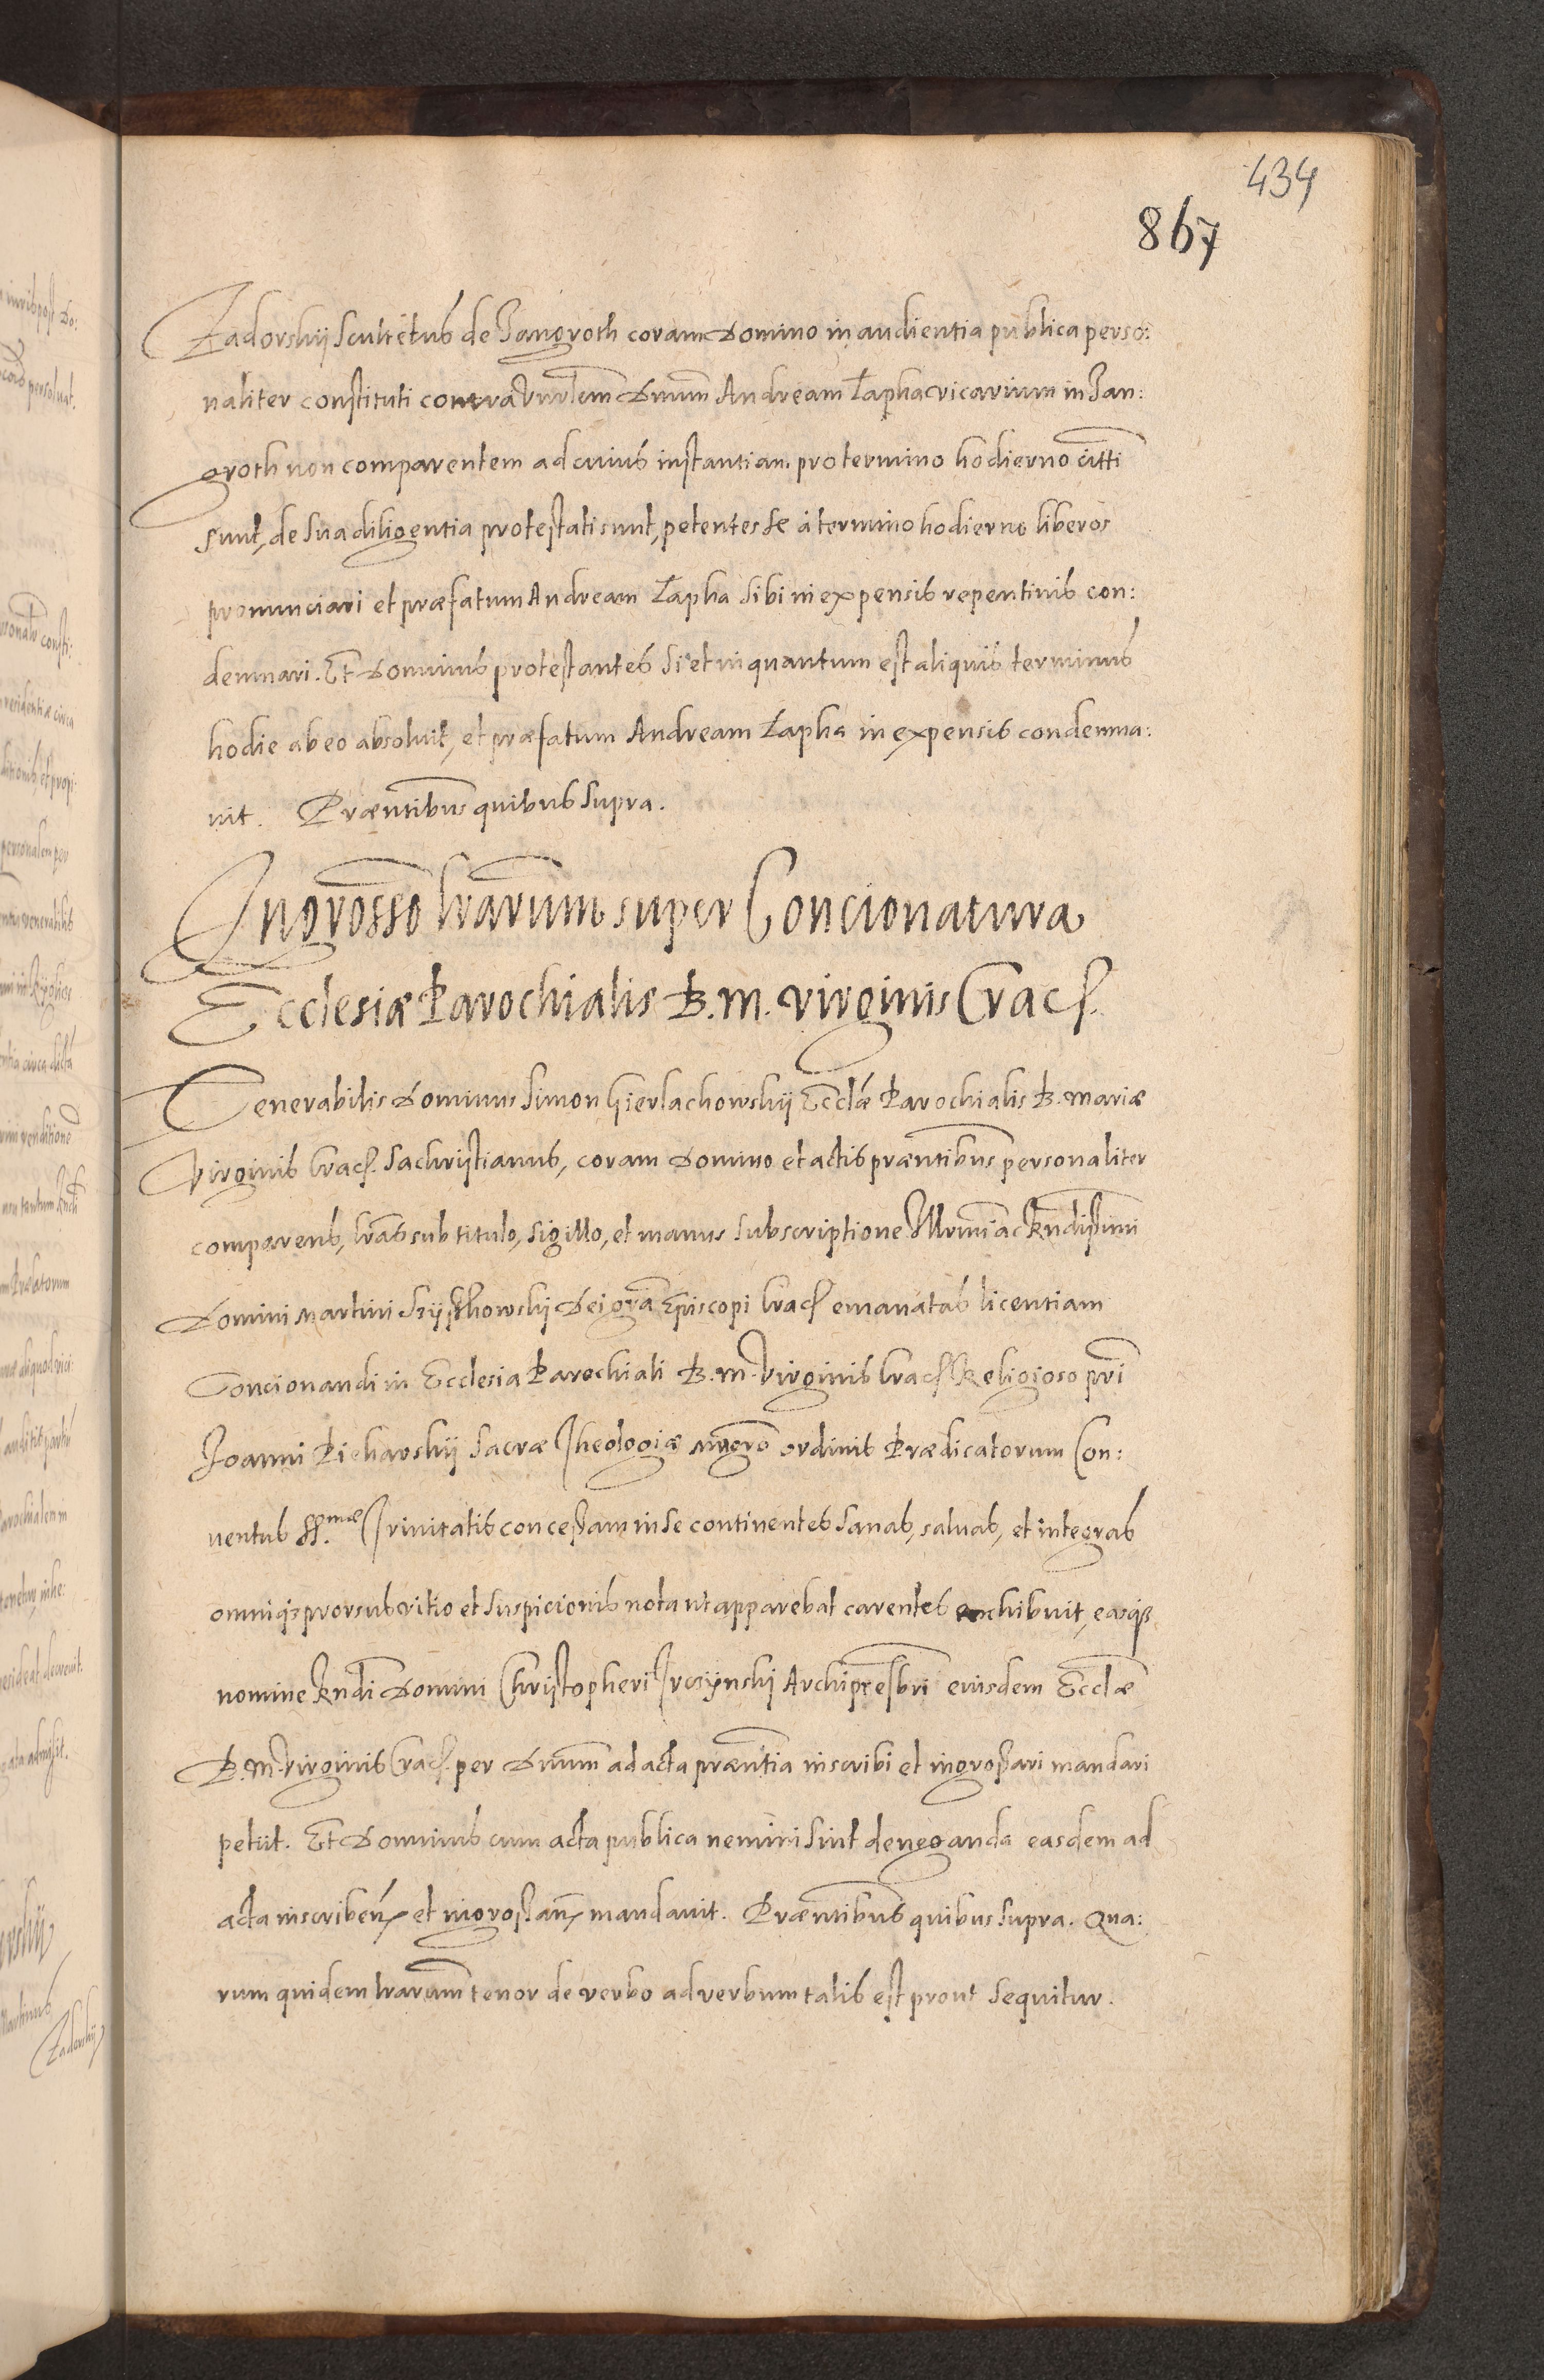 434
867
Zadorskij Scultetus de Jangroth coram Domino in audientia publica perso:
naliter constituti contra Vnrlem Dnum Andream Łapka vicarium in Jan:
groth non comparentem ad cuius instantiam pro termino hodierno citti
sunt, de sua diligentia protestati sunt, petentes se à termino hodierno liberos
pronunciari et præfatum Andream Łapka sibi in expensis repentinis con:
demnari. Et Dominus protestantes si et in quantum est aliquis terminus
hodie ab eo absoluit, et præfatum Andream Łapka in expensis condemna:
uit. Præntibus quibus supra.
Ingrosso lrarum super Concionatura
Ecclesiæ Parochialis B. M. Virginis Crac.
Venerabilis Dominus Simon Gierlachowskij Ecclæ Parochialis B. Mariæ
Virginis Crac. Sachristianus, coram Domino et actis præntibus personaliter
comparens, lras sub titulo, sigillo, et manus subscriptione Illrmi ac Rndissimi
Domini Martini Szyszkowskij Dei gra Episcopi Crac. emanatas licentiam
Concionandi in Ecclesia Parochiali B. M. Virginis Crac. Religioso pri
Joanni Piekarskij Sacræ Theologiæ Mgro ordinis Prædicatorum Con:
uentus SS.mæ Trinitatis concessam in se continentes sanas, saluas, et integras
omniq; prorsus vitio et suspicionis nota ut apparebat carentes exhibuit, easq;
nomine Rndi Domini Christopheri Trczynski Archipresbri eiusdem Ecclæ
B. M. Virginis Crac. per Dnum ad acta præntia inscribi et ingrossari mandari
petiit. Et Dominus cum acta publica nemini sint deneganda easdem ad
acta inscriben. et ingrossan. mandauit. Præntibus quibus supra. Qua:
rum quidem lrarum tenor de verbo ad verbum talis est prout sequitur.